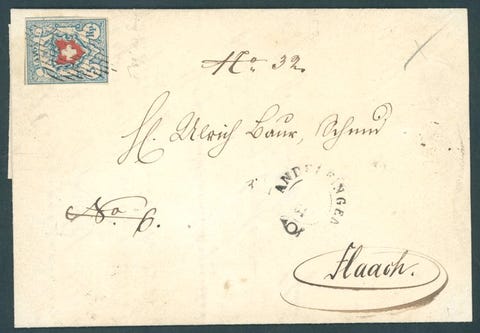 No. 32.
H. Ulrich Baur, Schmid
ANDELFINGEN
No. 6.
Flaach.